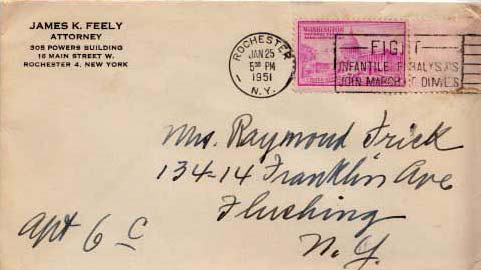 JAMES K. FEELY
ATTORNEY
305 POWERS BUILDING
16 MAIN STREET W.
ROCHESTER 4, NEW YORK
ROCHESTER
JAN 25
5 PM
1951
N.Y.
WASHINGTON
FIGHT
INFANTILE PARALYSIS
JOIN MARCH OF DIMES
Mrs. Raymond Frick
134-14 Franklin Ave
Flushing
N.Y.
Apt 6 C